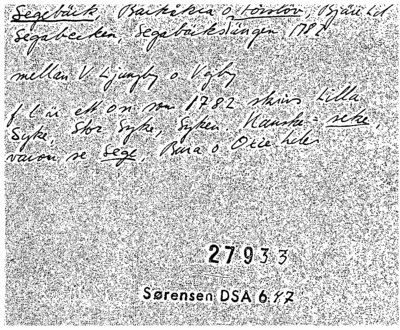 Segebäck, Barkåkra o Förslöv, Bjäre hd
Segabecken, Segabäcksängen, 1782
mellan V. Ljungby o Vejby
ett on. som 1782 skrivs Lilla
Syke, Stor Syke, Syken. = seke,
varom se Sege, Bara o Oxie hder
27933
Sørensen DSA 6.47